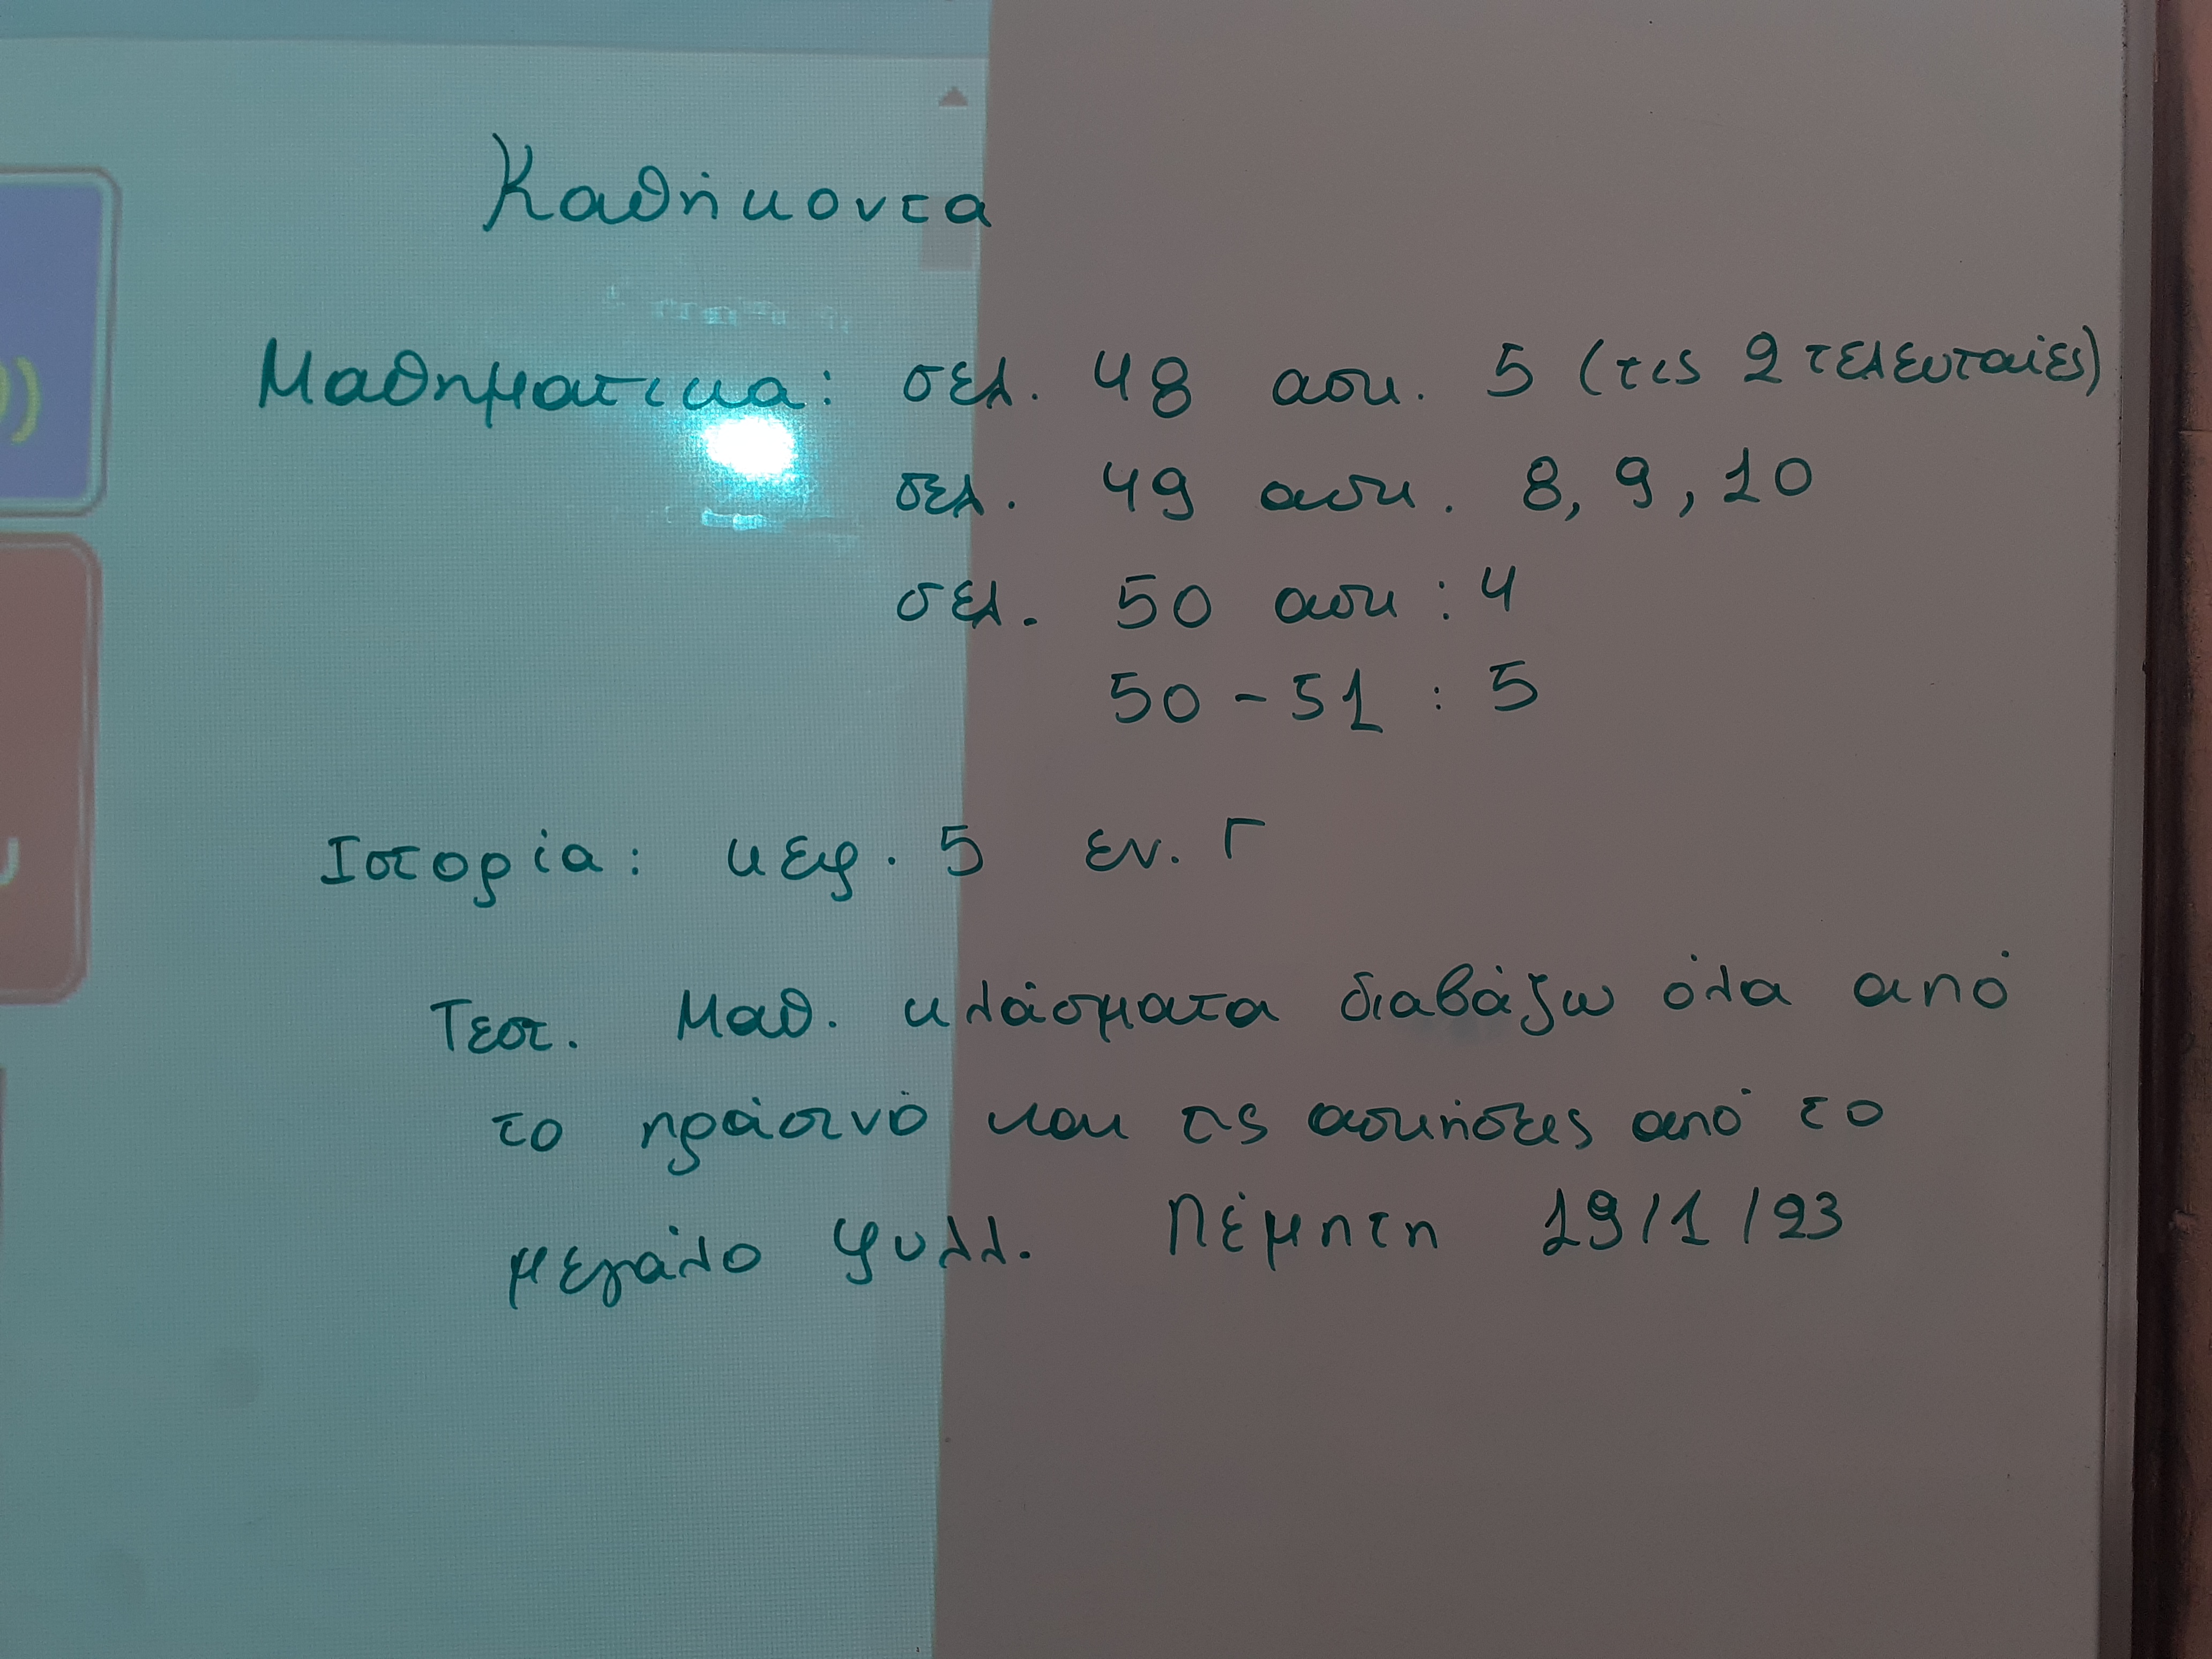 Καθήκοντα
Μαθηματικα: σελ. 48 ασκ. 5 (τις 2 τελευταίες)
σελ. 49 ασκ. 8, 9, 10
σελ. 50 ασκ : 4
50 - 51 : 5
Ιστορία: κεφ. 5 εν. Γ
Τεστ. Μαθ. κλάσματα διαβάζω όλα από
το πράσινό και τις ασκήσεις από το
μεγάλο φυλλ. Πέμπτη 19/1/23